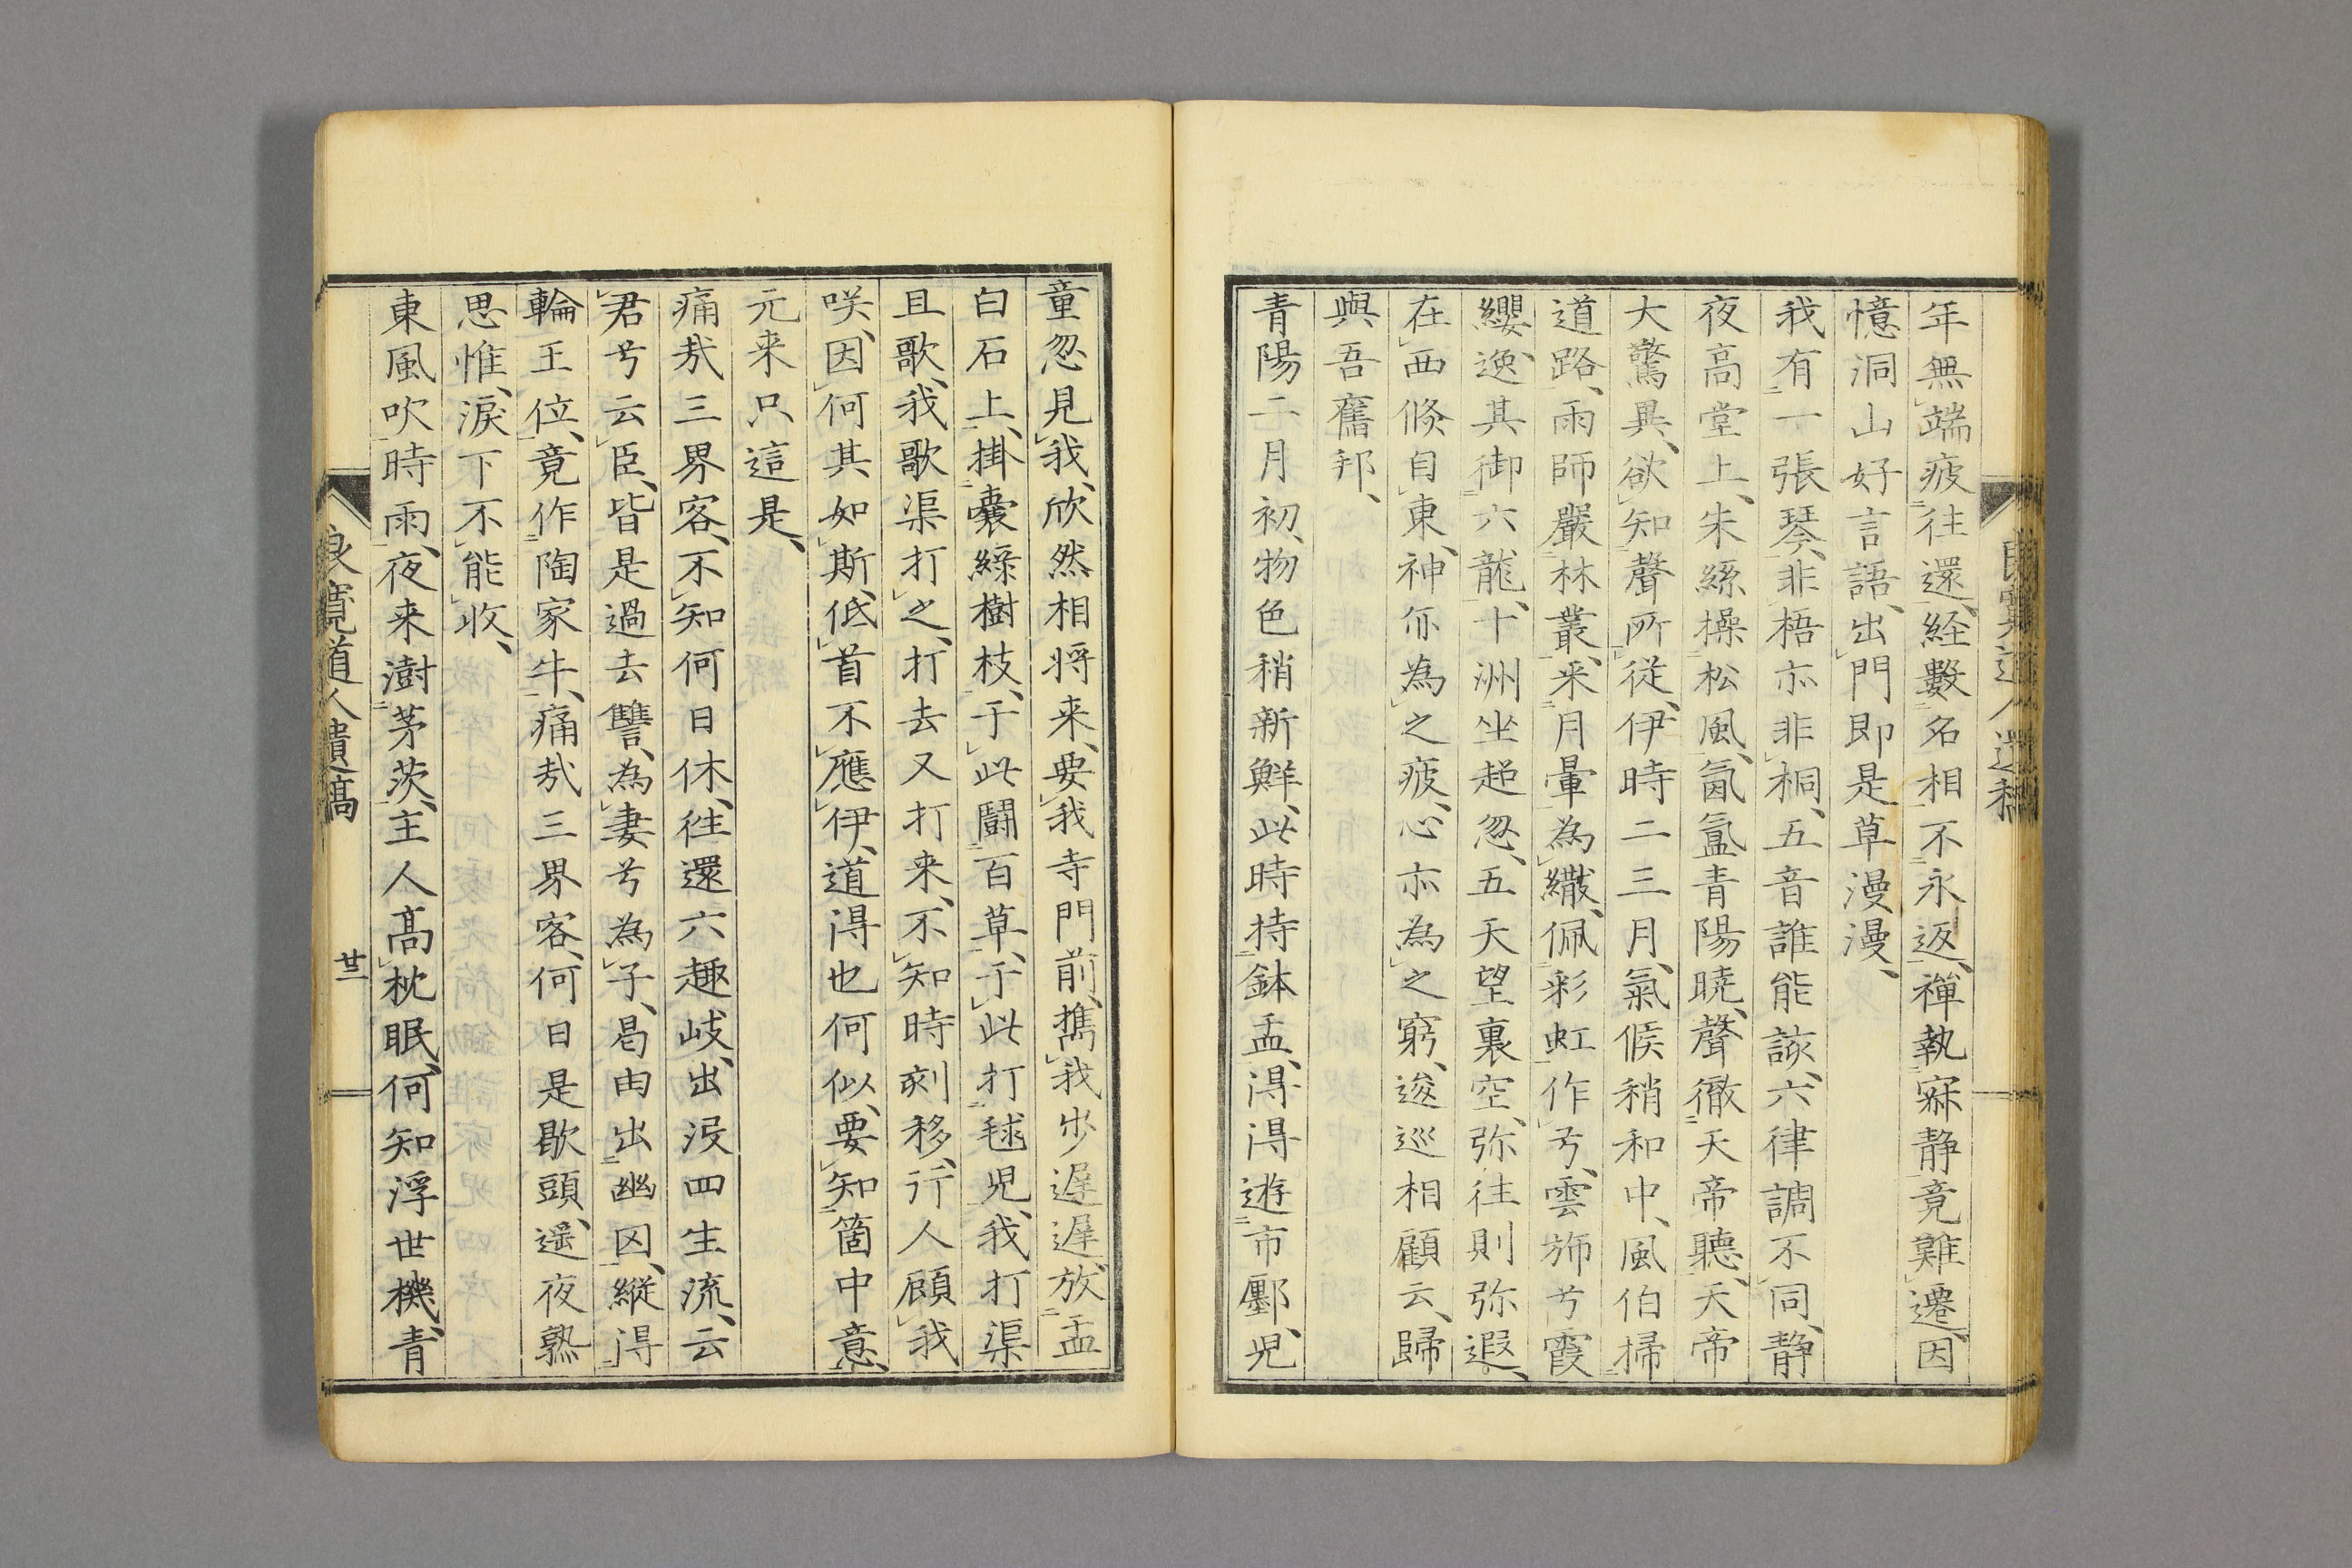 年無端疲往還、経數名相不永返、禅執寂静竟難遷、因
憶洞山好言語、出門即是草漫漫、
我有一張琴、非梧亦非桐、五音誰能該、六律調不同、静
夜高堂上、朱絲操松風、氤氳青陽曉、聲徹天帝聽、天帝
大驚異、欲知聲所従、伊時二三月、氣候稍和中、風伯掃
道路、雨師嚴林叢、采月暈為繖、佩彩虹作弓、雲斾兮霞
纓、遶其御六龍、十洲坐超忽、五天望裏空、弥往則弥遐、
在西倏自東、神尓為之疲、心亦為之窮、逡巡相顧云、歸
與吾舊邦、
青陽二月初、物色稍新鮮、此時持鉢盂、得得遊市鄽、児
童忽見我、欣然相将来、要我寺門前、携我歩遅遅、放盂
白石上、掛嚢緑樹枝、于此闘百草、于此打毬児、我打渠
且歌、我歌渠打之、打去又打来、不知時刻移、行人顧我
咲、因何其如斯、低首不應伊、道得也何似、要知箇中意、
元来只這是、
痛㦲三界客、不知何日休、徃還六趣岐、出没四生流、云
君兮云臣、皆是過去讐、為妻兮為子、曷由出幽囚、縦得
輪王位、竟作陶家牛、痛㦲三界客、何日是歇頭、遥夜熟
思惟、淚下不能收、
東風吹時雨、夜来澍茅茨、主人髙枕眠、何知浮世機、青
良寛道人遺稿
廿三